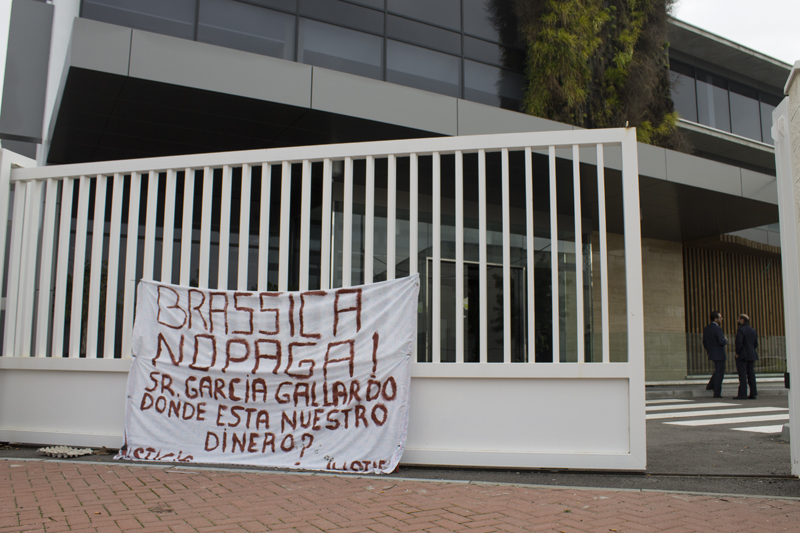 BRASSICA
NO PAGA!
SR. GARCÍA GALLARDO
DONDE ESTA NUESTRO
DINERO?